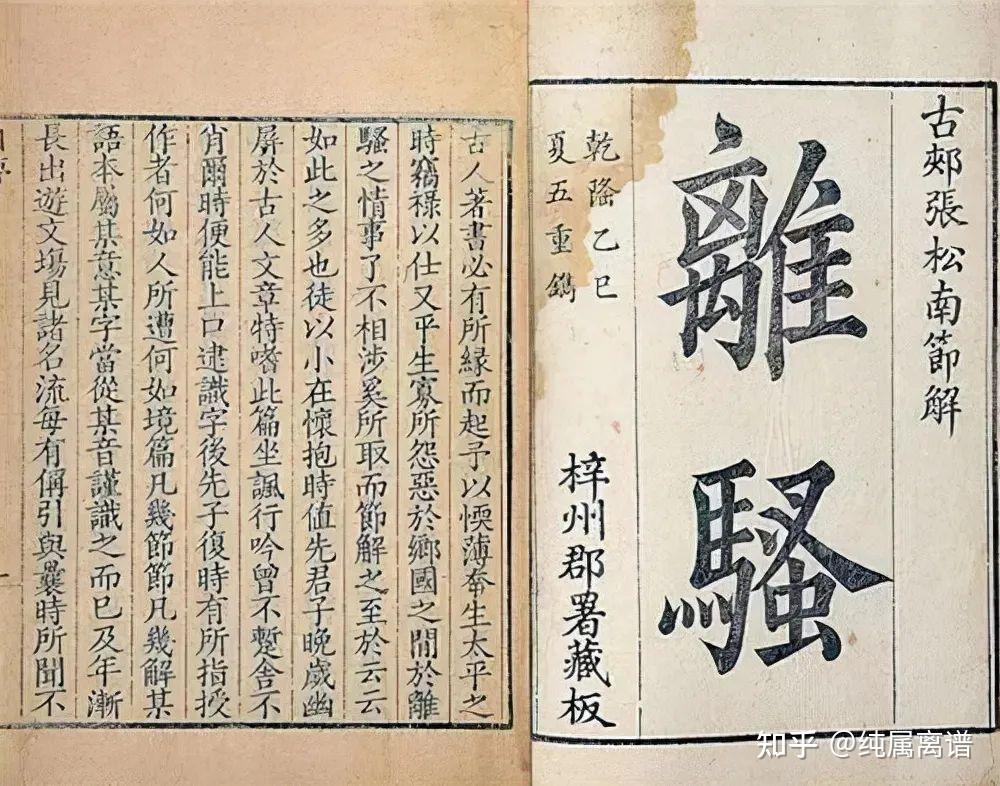 古郟張松南節解
離騷
乾隆乙巳
夏五重鐫
梓州郡署藏板
古人著書必有所緣而起予以愞薄夲生太平之
時竊祿以仕又平生寡所怨惡於鄉國之間於離
騷之情事了不相涉奚所取而節解之至於云云
如此之多也徒以小在懷抱時值先君子晚歲幽
屏於古人文章特嗜此篇坐諷行吟曾不蹔舍不
肖爾時便能上口逮識字後先子復時有所指授
作者何如人所遭何如境篇凡幾節節凡幾解某
語本屬某意某字當從某音謹識之而已及年漸
長出遊文場見諸名流每有偁引與曩時所聞不
知乎 @纯属离谱